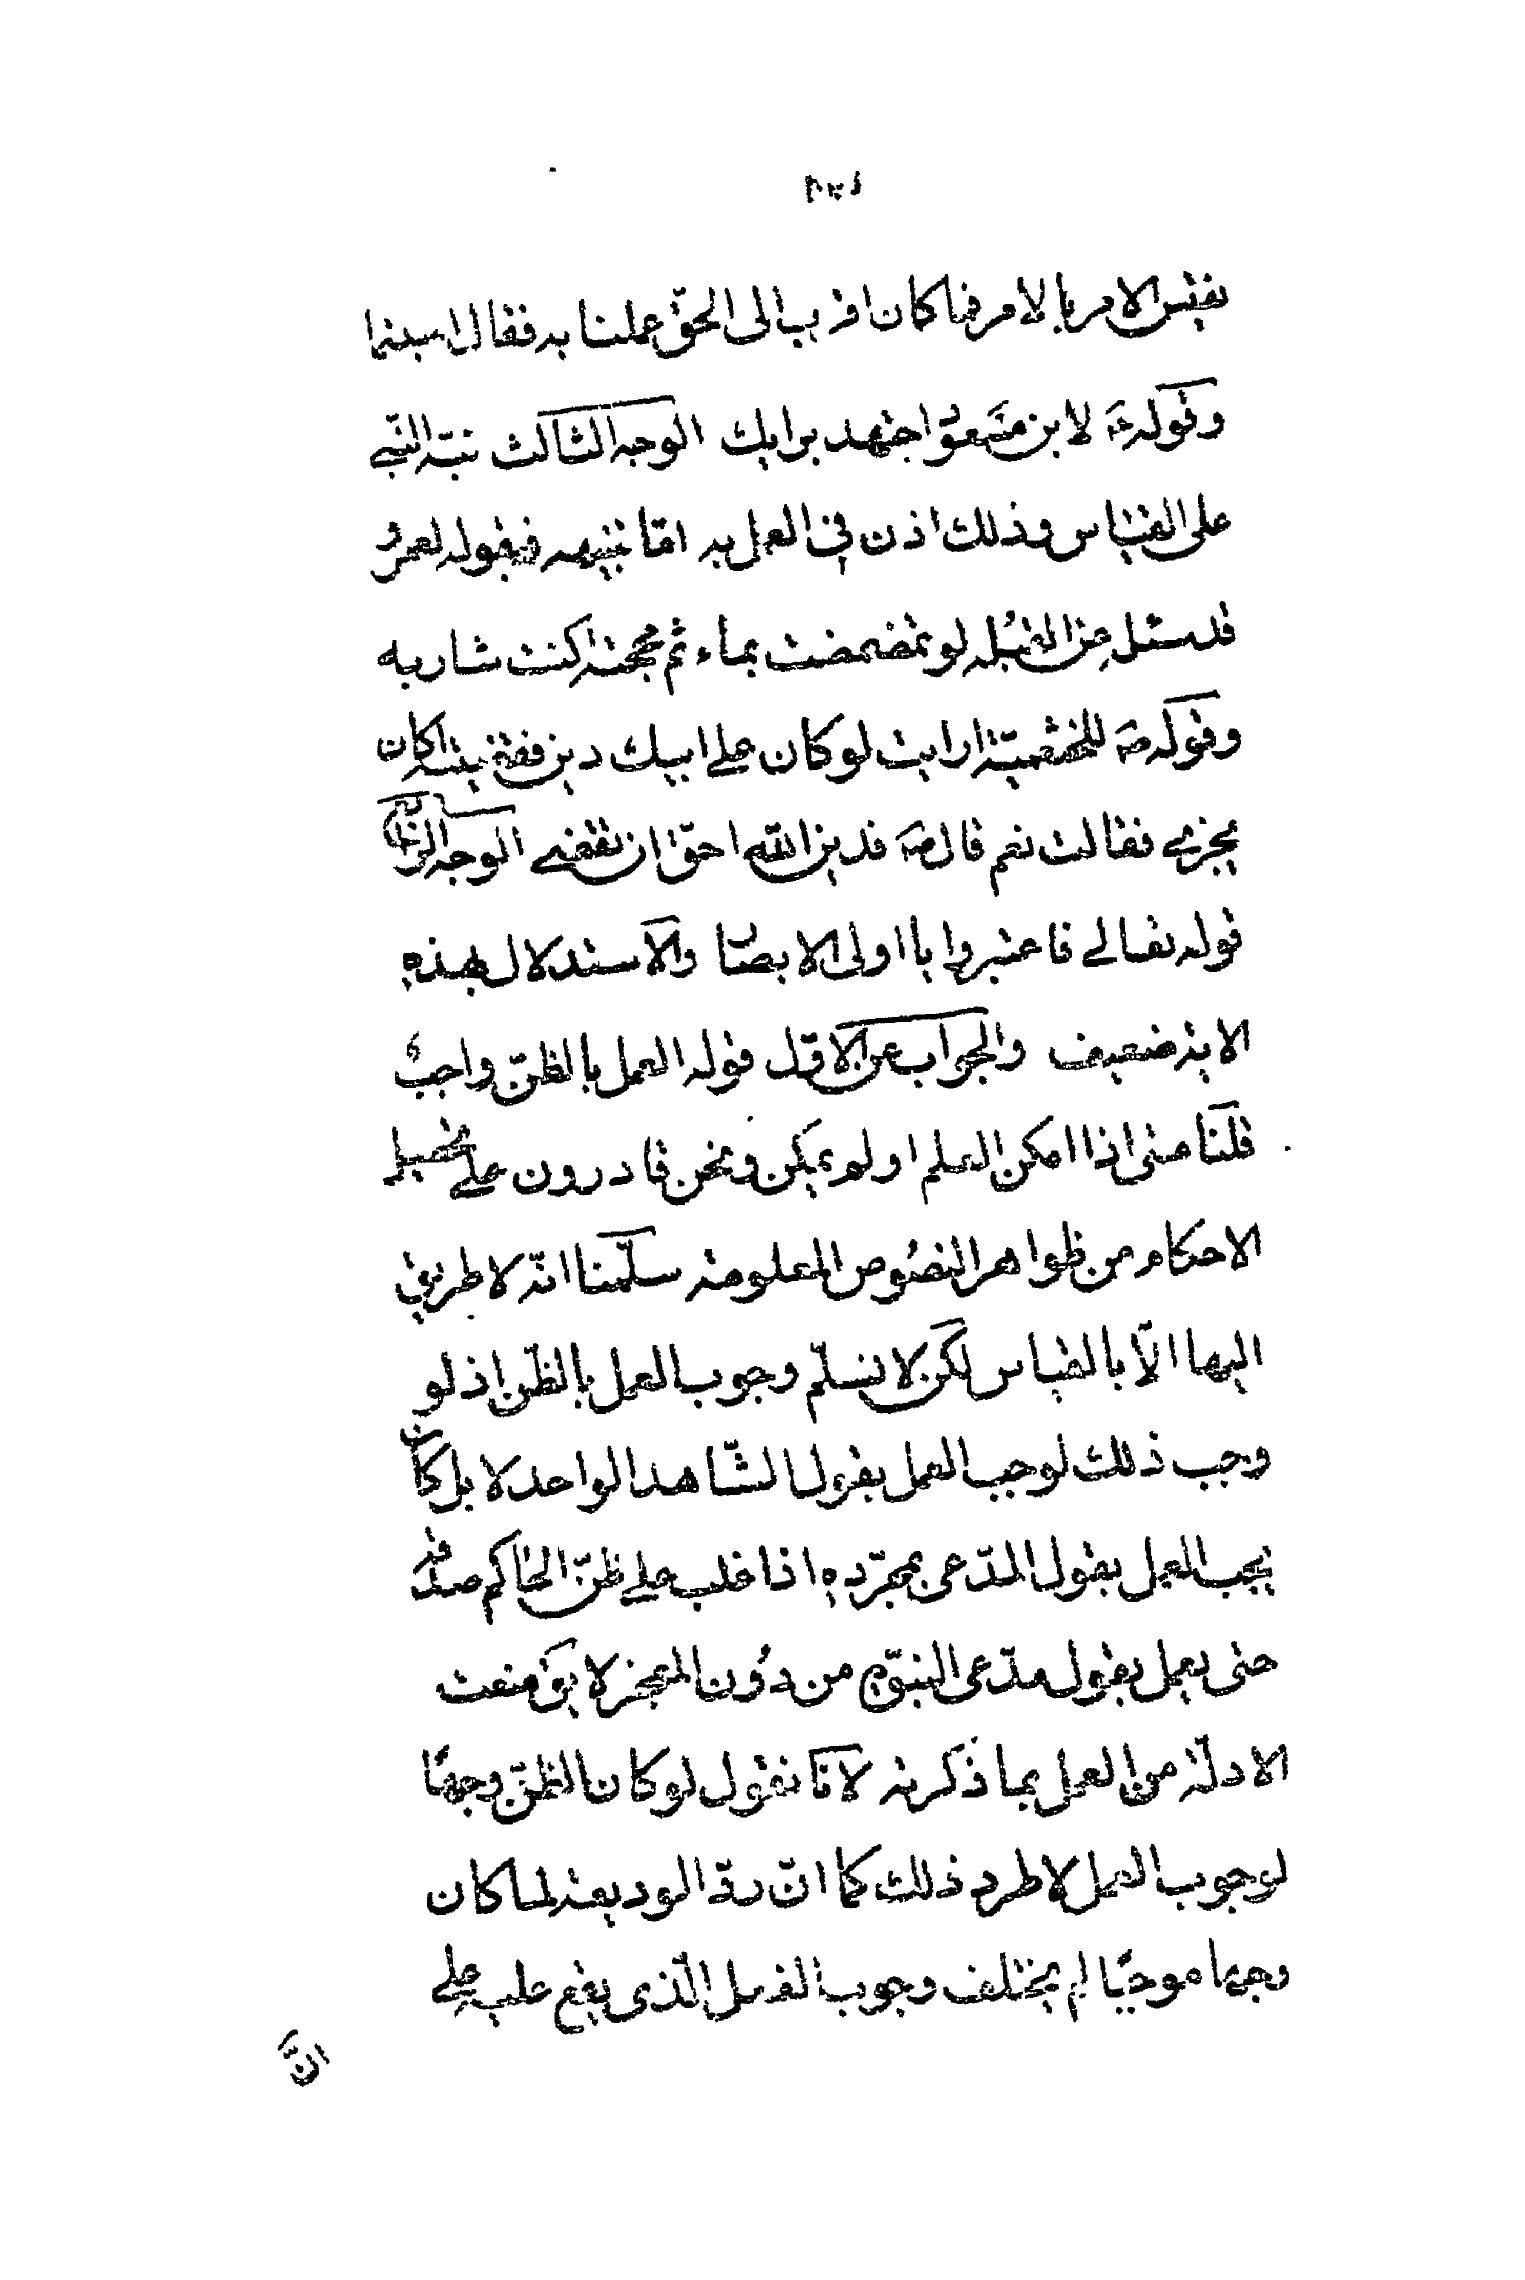 نقيس الامر بالامر فما كان اقرب الى الحقّ عملنا به فقال اصبتما
وقوله ع لابن مسعود اجتهد برايك الوجه الثالث نبّه النّبي
على القياس وذلك اذن في العمل به امّا تنبيهه فبقوله لعمر و
قد سئل عن القُبله لو تمضمضت بماء ثم مججته اكنت شاربه
وقوله ص للخثعميّة ارايت لو كان على ابيك دين فقضيته اكان
يجزي فقالت نعم قال ص فدين اللّه احقّ ان يقضى الوجه الرّابع
قوله تعالى فاعتبروا يا اولى الابصار والاستدلال بهذه
الاية ضعيف والجواب عن الاوّل قوله العمل بالظنّ واجبٌ
قلنا متى اذا امكن العلم او لم يمكن ونحن قادرون على تحصيل
الاحكام من ظواهر النصُوص المعلومة سلّمنا انّه لا طريق
اليها الّا بالقياس لكن لا نسلّم وجوب العمل بالظّن اذ لو
وجب ذلك لوجب العمل بقول الشّاهد الواحد لا بل كان
يجب العمل بقول المدّعى بمجرّده اذا غلب على ظنّ الحاكم صدقه
حتى يعمل بقول مدّعى النبوّة من دُون المعجز لا يق منعت
الادلّة من العمل بما ذكرته لانّا نقول لو كان الظنّ وجهًا
لوجوب العمل لاطرد ذلك كما انّ ردّ الوديعة لما كان
وجها موجبًا لم يختلف وجوب الفعل الّذى يقع عليه على
انّ